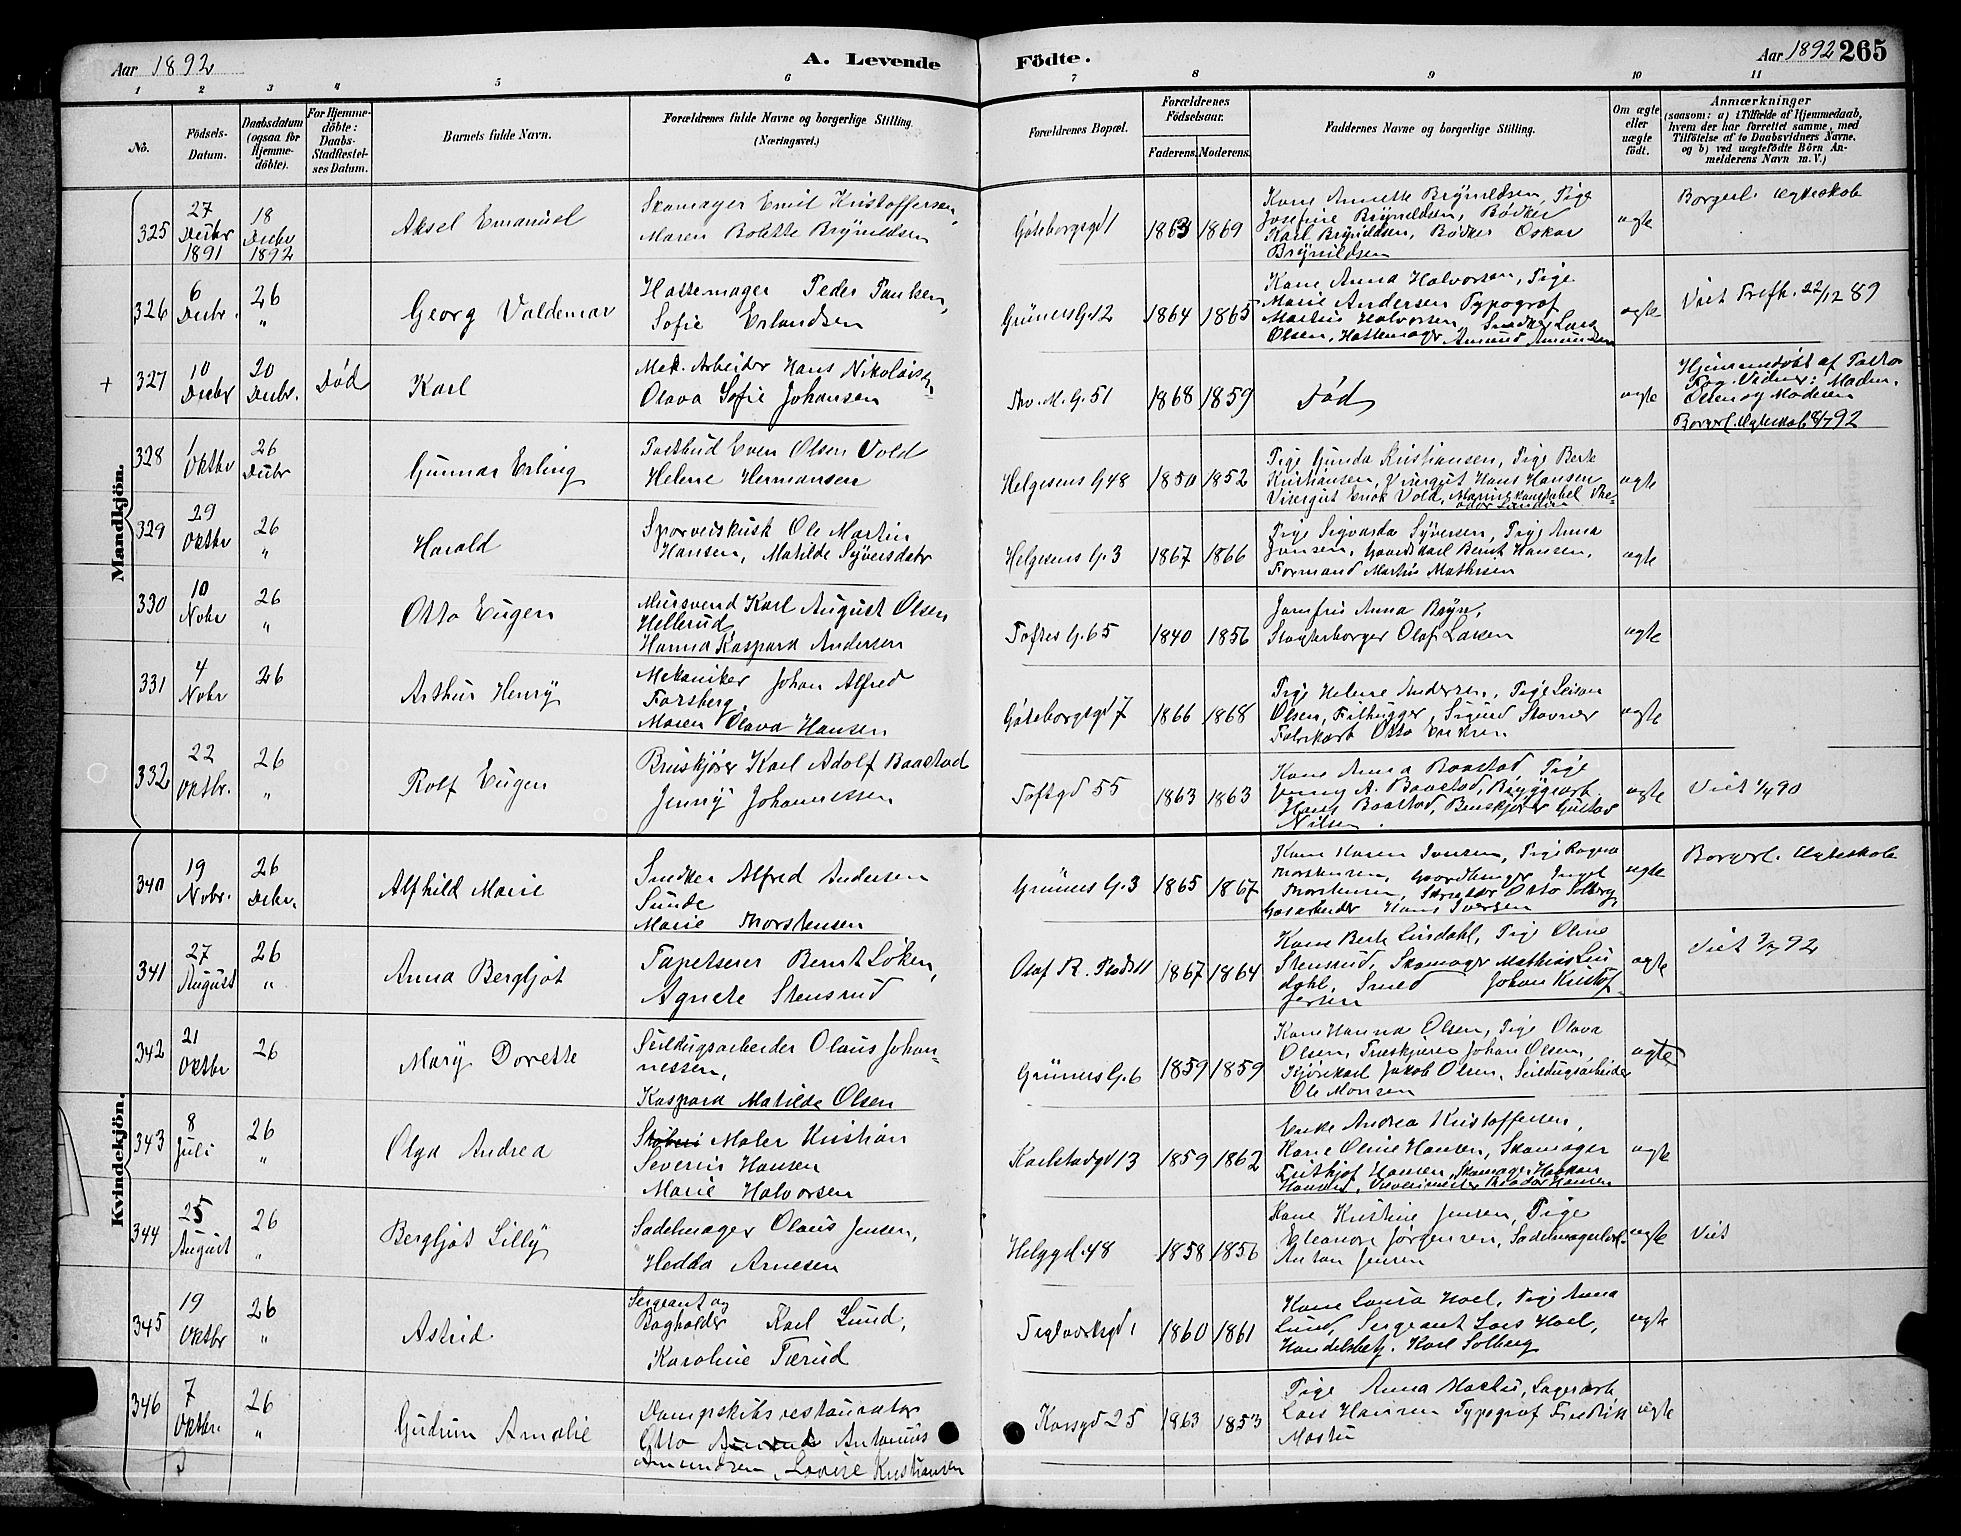 Aar 1892
A. Levende
Födte.
Aar 1892 265
1 2 3 4 5 6 7 8 9 10 11
No.
Födsels-
Datum.
Daabsdatum
(ogsaa for
Hjemme-
döbte).
For Hjemme-
döbte:
Daabs-
Stadfæstel-
ses Datum.
Barnets fulde Navn.
Forældrenes fulde Navne og borgerlige Stilling.
(Næringsvei.)
Forældrenes Bopæl.
Forældrenes
Födselsaar.
Faderens. Moderens.
Faddernes Navne og borgerlige Stilling.
Om ægte
eller
uægte
födt.
Anmærkninger
(saasom: a) i Tilfælde af Hjemmedaab,
hvem der har forrettet samme, med
Tilföielse af to Daabsvidners Navne,
og b) ved uægtefödte Börn An-
melderens Navn m. V.)
Mandkjön.
325
27
Decbr
1891
18
Decbr
1892
Aksel Emanuel
Skomager Emil Kristoffersen,
Maren Bolette Brynildsen
Göteborgsgd 1
1863 1869
Kone Annette Brynildsen, Pige
Josefine Brynildsen, Bödker
Karl Brynildsen, Bödker Oskar
Brynildsen
ægte
Borgerl. Ægteskab
326
6
Decbr.
26
"
Georg Valdemar
Hattemager Peder Paulsen,
Sofie Erlandsen
Grüners G. 12
1864 1865
Kone Anna Halvorsen, Pige
Marie Andersen Typograf
Martin Halvorsen, Snedker Lars
Olsen, Hattemager Amund Amundsen
ægte
Viet Trefk. 22/12 89
+ 327
10
Decbr
20
Decbr.
Död
Karl
Mek. Arbeider Hans Nikolaisen,
Olava Sofie Johansen
Thv. M. G. 51
1868 1859
Död
ægte
Hjemmedöbt af Pastor
Vidner: Madm.
Olsen og Moderen
Borgerl. Ægteskab 8/7 92
328
1
Oktbr
26
Decbr
Gunnar Erling
Postbud Even Olsen Vold
Helene Hermansen
Helgesens G 48
1850 1852
Pige Gunda Kristiansen, Pige Berte
Kristiansen, Visergut Hans Hansen
Visergut Enok Vold, Marinekonstabel The-
odor Lunden
ægte
329
29
Oktbr
26
"
Harald
Sporveiskusk Ole Martin
Hansen, Matilde Syversdatr
Helgesens G. 3
1867 1866
Pige Sigvarda Syversen, Pige Anna
Jonsen, Gaardskarl Bernt Hansen,
Formand Martin Mathisen
ægte
330
10
Nobr
26
"
Otto Eugen
Mursvend Karl August Olsen
Hellerud
Hanna Kaspara Andersen
Toftes G. 65
1840 1856
Jomfru Anna Bryn,
Slagterborger Olaf Larsen
ægte
331
4
Nobr
26
Arthur Henry
Mekaniker Johan Alfred
Forsberg,
Maren Olava Hansen
Göteborgsgd 7
1866 1868
Pige Helene Andersen, Pige
Olsen, Filhugger, Sigurd Stovner
Fabrikarb Otto Eriksen
ægte
332
22
Oktbr.
26
"
Rolf Eugen
Bruskjører Karl Adolf Baastad
Jenny Johannessen
Toftsgd 55
1863 1863
Kone Anna Baastad Pige
Jenny A. Baastad, Bryggearb.
Hans Baastad, Bruskjører Gustav
Nilsen.
ægte
Viet 1/4 90
Kvindekjön.
340
19
Nobr.
26
Decbr.
Alfhild Marie
Snedker Alfred Andersen
Sunde
Marie Thorstensen
Grüners G. 3
1865 1867
Kone Karen Iversen, Pige Ragna
Thorstensen, Gaardbruger Ingel
Thorstensen, Skrædder Otto Solberg,
Gasarbeider Hans Iversen
ægte
Borgerl. Ægteskab
341
27
August
26
"
Anna Bergljot
Tapetserer Bernt Löken,
Agnete Stensrud
Olaf R. Plads 11
1867 1864
Kone Berte Lindahl, Pige Oline
Stensrud, Skomager Mathias Lin
dahl, Smed Johan Kristof-
fersen
ægte
Viet 3/7 92
342
21
Oktbr
26
Mary Dorette
Seildugsarbeider Olaus Johan-
nessen,
Kaspara Matilde Olsen
Grüners G. 6
1859 1859
Kone Hanna Olsen, Pige Olava
Olsen, Træskjærer Johan Olsen,
Kjörekarl Jakob Olsen, Seildugsarbeider
Ole Monsen
ægte
343
8
Juli
26
"
Olga Andrea
Maler Kristian
Severin Hansen
Marie Halvorsen
Karlstadgd 13
1859 1862
Enke Andrea Kristoffersen,
Kone Oline Hansen, Skomager
Fritjof Hansen, Skomager Haakon
Hansen, Værkmester Theodor Hansen
ægte
344
25
August
26
"
Bergljot Lilly
Sadelmager Olaus Jensen,
Hedda Arnesen
Helggd. 48
1858 1856
Kone Kristine Jensen, Pige
Eleanore Jørgensen, Sadelmagerlærl.
Anton Jensen
ægte
Viet
345
19
Oktbr
26
"
Astrid
Sergeant og
Bogholder Karl Lund,
Karoline Tærud
Teglverksgd 1
1860 1861
Kone Laura Hoel, Pige Anna
Lund, Sergeant Lars Hoel,
Handelsbetj. Karl Solberg
ægte
346
7
Oktbr.
26
"
Gudrun Amalie
Dampskibsrestauratør
Otto Antonius
Amundsen, Lovise Kristiansen
Korsgd 25
1863 1853
Pige Anna Moestu, Lagerarb.
Lars Hansen Typograf Fredrik
Moestu
ægte